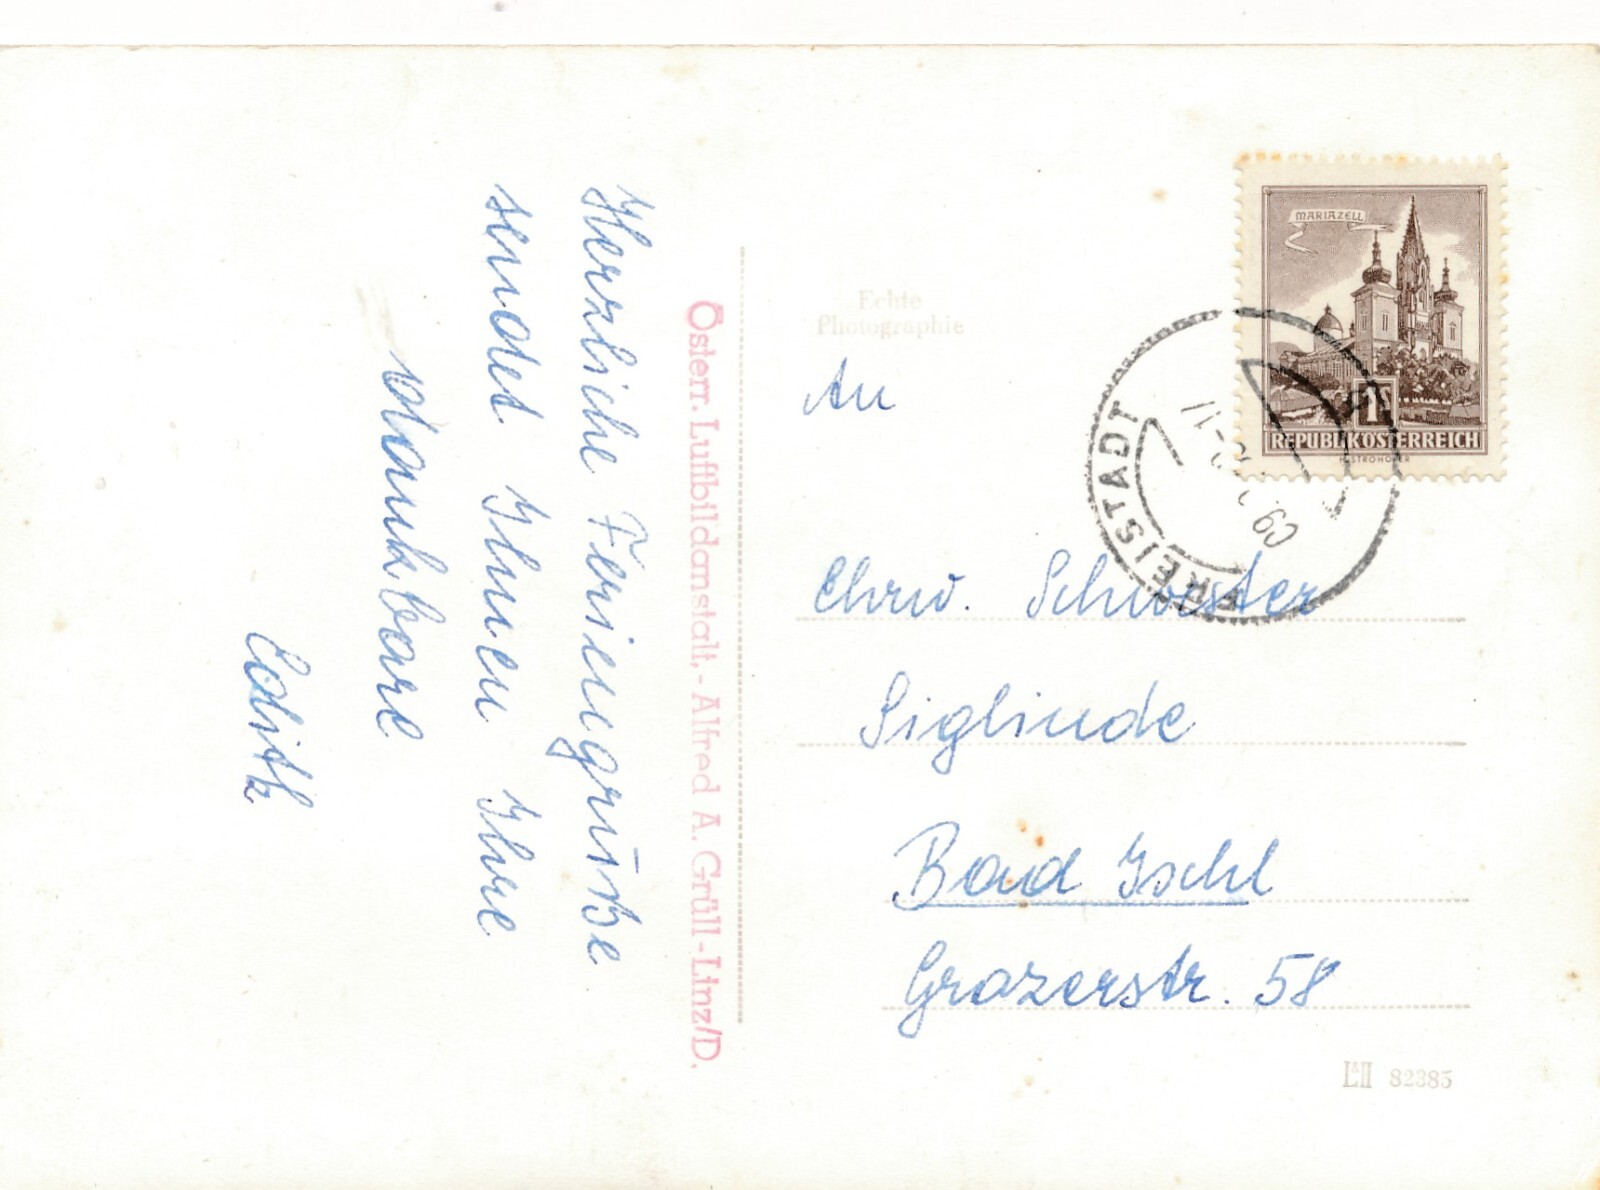 Herzliche Feriengrüße
sendet Ihnen Ihre
dankbare
Edith
Österr. Luftbildanstalt,- Alfred A. Grüll-Linz/D.
Echte
Photographie
MARIAZELL
1S
REPUBLIK ÖSTERREICH
FREISTADT
An
Ehrw. Schwester
Siglinde
Bad Ischl
Grazerstr. 58
82385